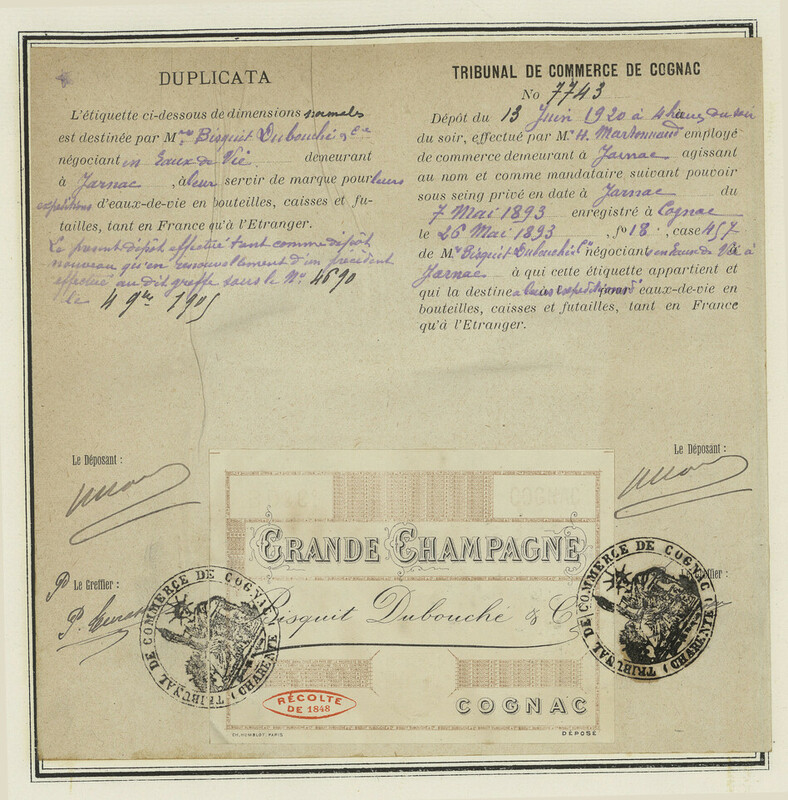 DUPLICATA
L'étiquette ci-dessous de dimensions normales
est destinée par Mrs Bisquit Dubouché & Cie
négociant en Eaux de Vie demeurant
à Jarnac, à leur servir de marque pour leurs
expéditions d'eaux-de-vie en bouteilles, caisses et fu-
tailles, tant en France qu'à l'Etranger.
Le present dépôt effectué tant comme dépôt
nouveau qu'en renouvellement d'un précédent
effectué au dit greffe sous le No 4690
le 4 9bre 1905
TRIBUNAL DE COMMERCE DE COGNAC
No 7743
Dépôt du 13 Juin 1920 à 4 heures du soir
du soir, effectué par Mr H. Martonnaud employé
de commerce demeurant à Jarnac agissant
au nom et comme mandataire, suivant pouvoir
sous seing privé en date à Jarnac du
7 Mai 1893 enregistré à Cognac
le 26 Mai 1893, fo 18, case 457
de Mrs Bisquit Dubouché & Cie négociants en Eaux de Vie à
Jarnac à qui cette étiquette appartient et
qui la destine à leurs expéditions d'eaux-de-vie en
bouteilles, caisses et futailles, tant en France
qu'à l'Etranger.
Le Déposant :
Le Déposant :
Po Le Greffier :
Le Greffier :
GRANDE CHAMPAGNE
Bisquit Dubouché & Cie
RÉCOLTE
DE 1848
COGNAC
CH. HUMBLOT, PARIS
DÉPOSÉ
TRIBUNAL DE COMMERCE DE COGNAC (CHARENTE)
TRIBUNAL DE COMMERCE DE COGNAC (CHARENTE)